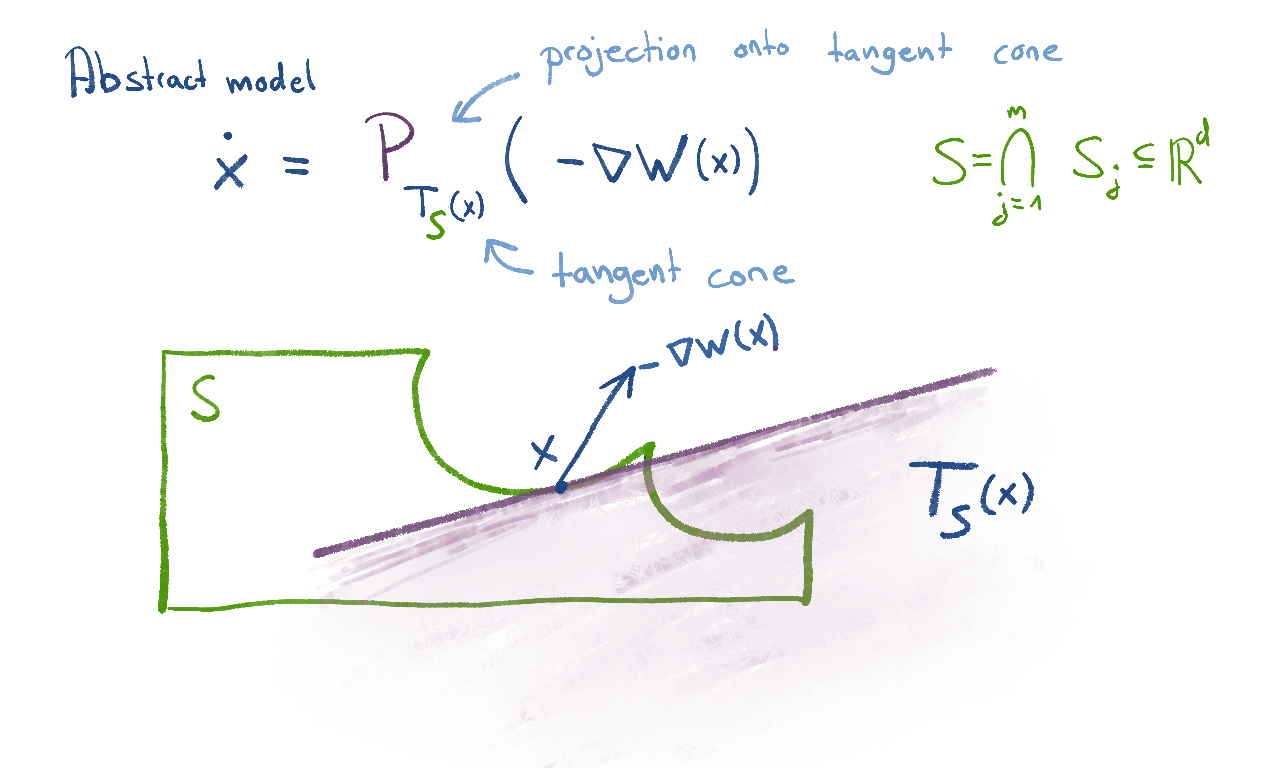 Abstract model
projection onto tangent cone
ẋ = P_{T_S(x)} ( -∇W(x) )
S = ⋂_{j=1}^{m} S_j ⊆ ℝ^d
tangent cone
-∇W(x)
S
x
T_S(x)